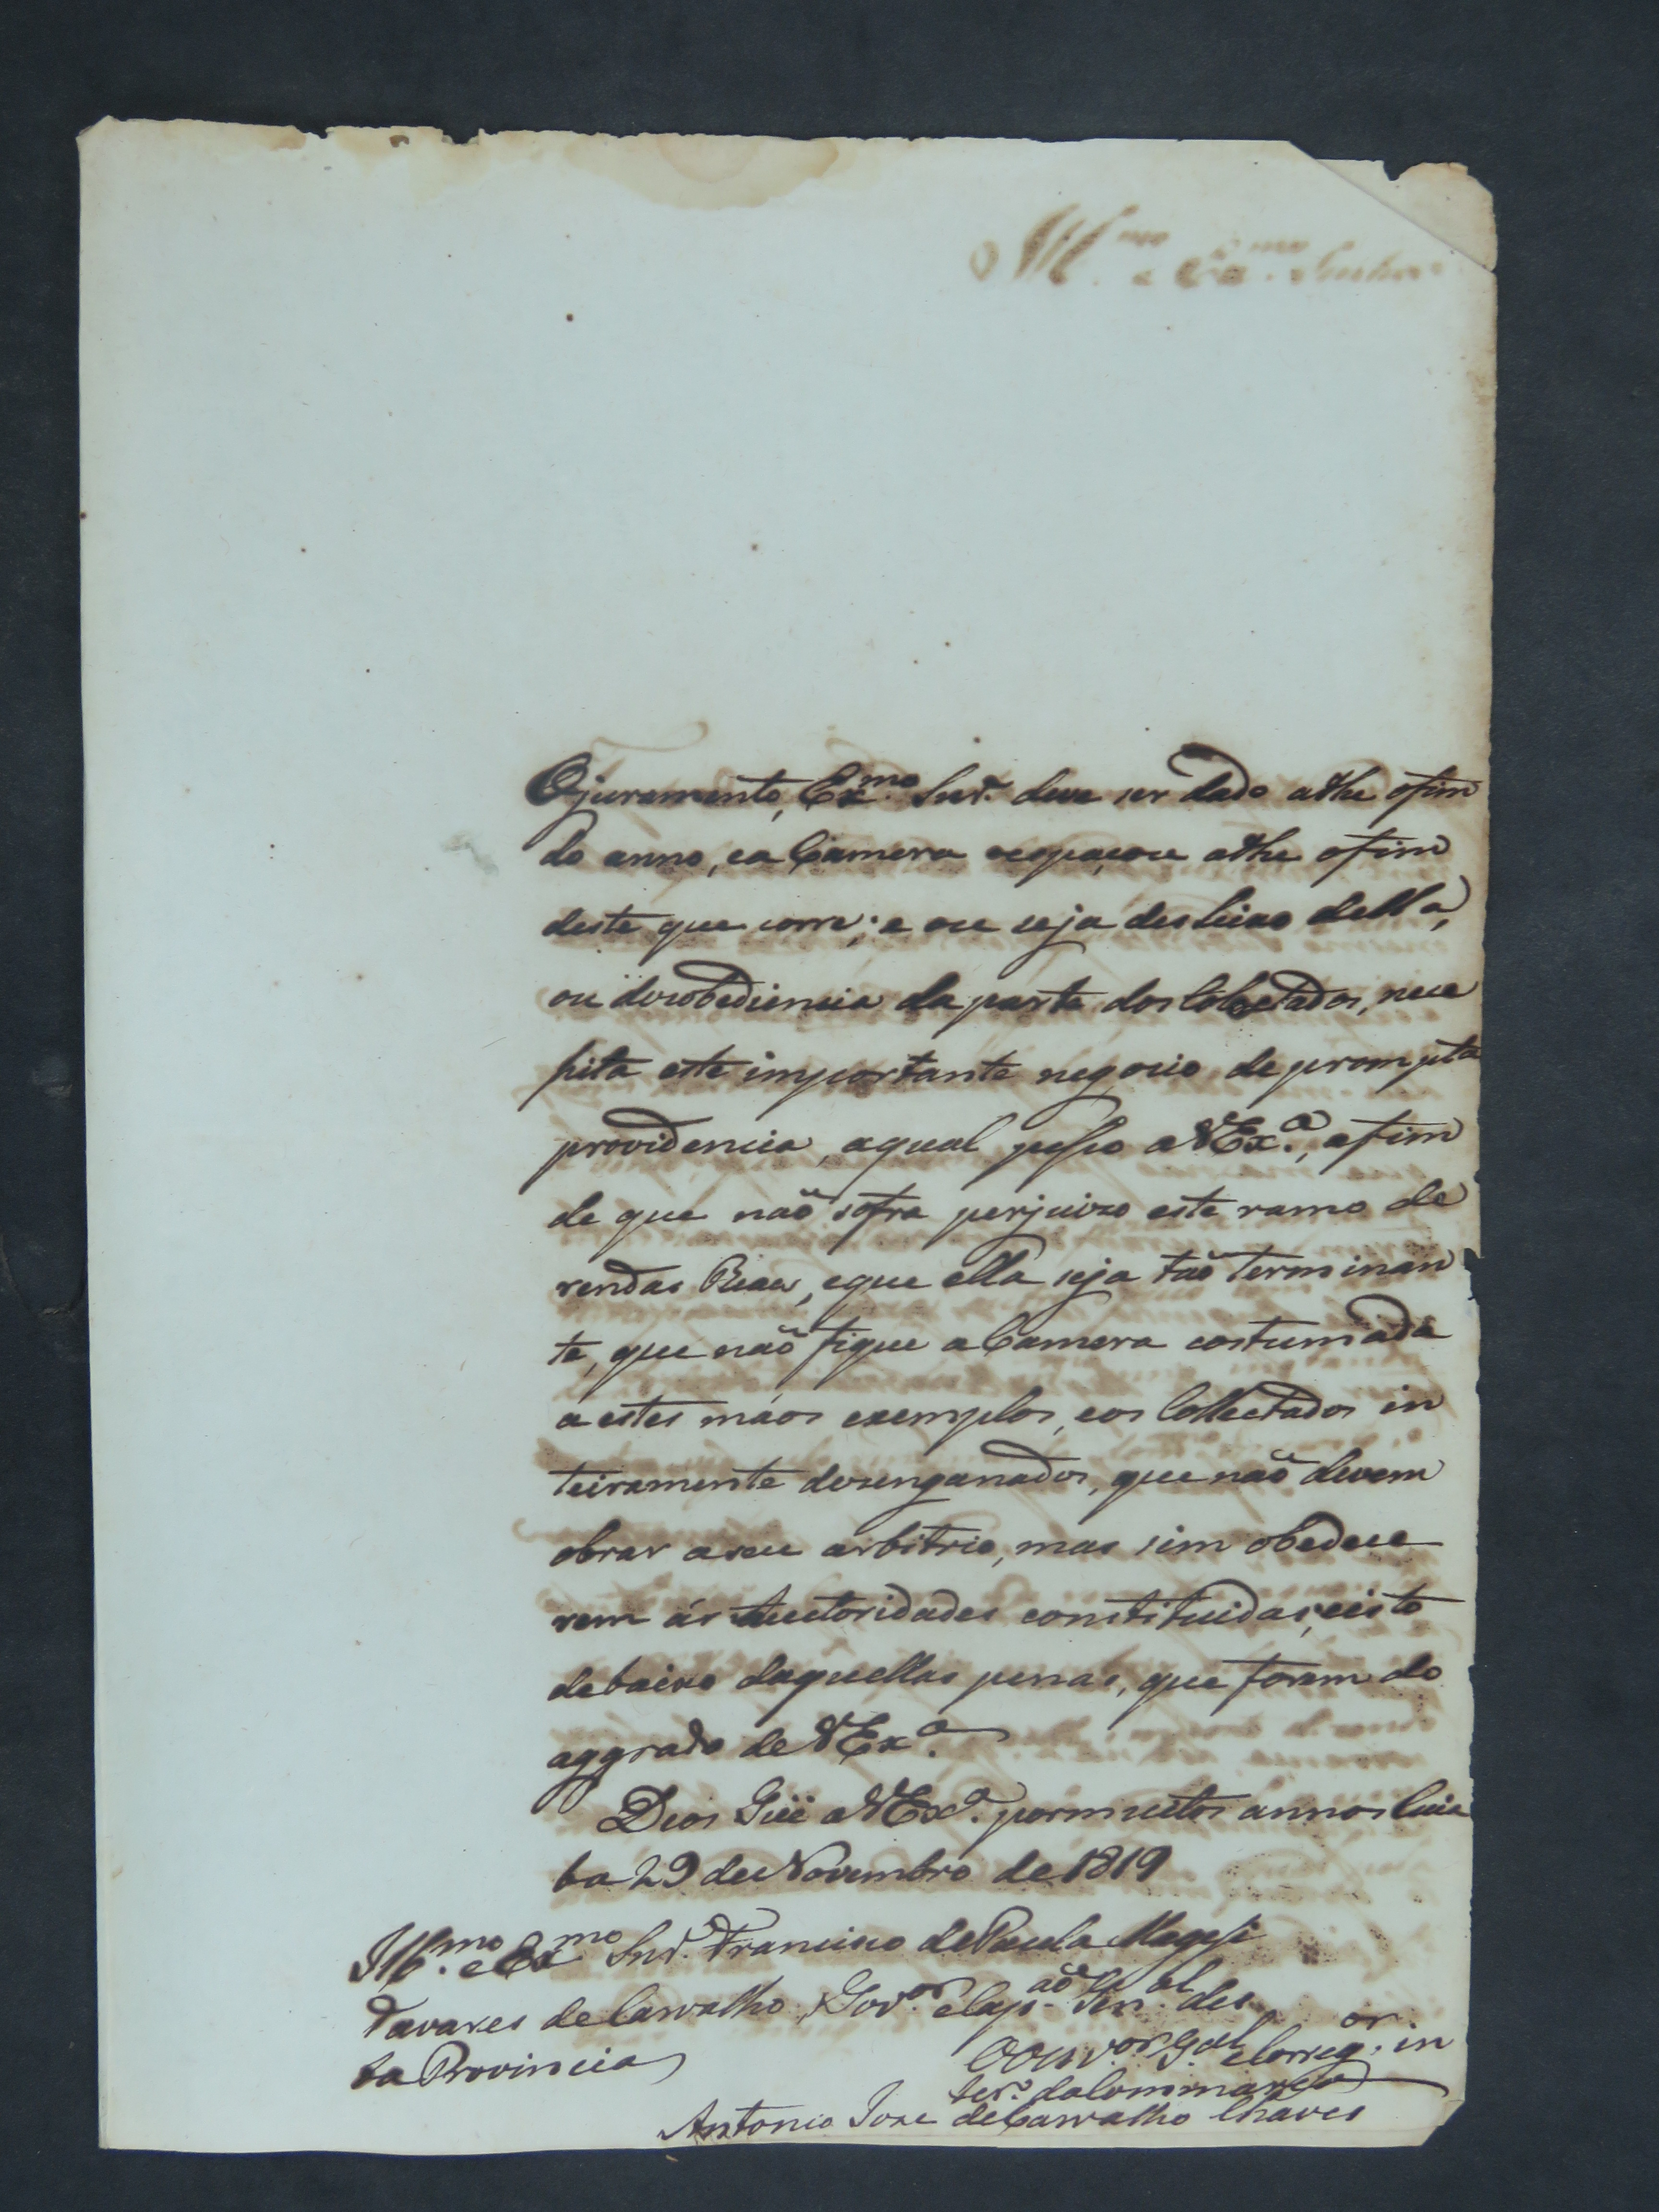 Ill.mo e Ex.mo Senhor
O juramento, Ex.mo Snr. deve ser dado athe o fim
do anno, e a Camera o espaçou athe o fim
deste que corre; e ou seja desleixo della,
ou desobediencia da parte dos Colectados, nece
ssita este importante negocio de prompta
providencia, a qual pesso a VEx.a, a fim
de que não sofra perjuizo este ramo de
rendas Reaes, e que ella seja tão terminan
te, que não fique a Camera costumada
a estes máos exemplos, e os Collectados in
teiramente desenganados, que não devem
obrar a seu arbitrio, mas sim obedece
rem ás Auctoridades constituidas, e isto
debaixo daquellas penas, que forem do
aggrado de VEx.a
Deos Gůe a VEx.a por muitos annos Cuia
ba 29 de Novembro de 1819
Ill.mo e Ex.mo Snr. Francisco de Paula Magessi
Tavares de Carvalho, Gov.or e Cap.ão Gen.al des
ta Provincia
O Ouv.or G.al e Correg.or in
ter.o da Commarca
Antonio Joze de Carvalho Chaves